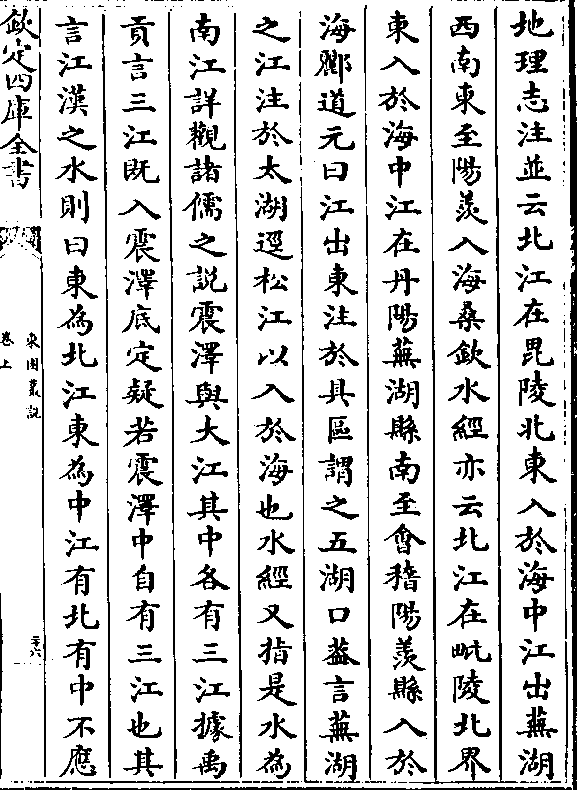 地理志注並云北江在毘陵北東入於海中江出蕪湖
西南東至陽羨入海桑欽水經亦云北江在毗陵北界
東入於海中江在丹陽蕪湖縣南至會稽陽羨縣入於
海酈道元曰江出東注於具區謂之五湖口葢言蕪湖
之江注於太湖逕松江以入於海也水經又指是水為
南江詳觀諸儒之説震澤與大江其中各有三江據禹
貢言三江既入震澤底定疑若震澤中自有三江也其
言江漢之水則曰東為北江東為中江有北有中不應
欽定四庫全書
東園叢説
卷上
二十六